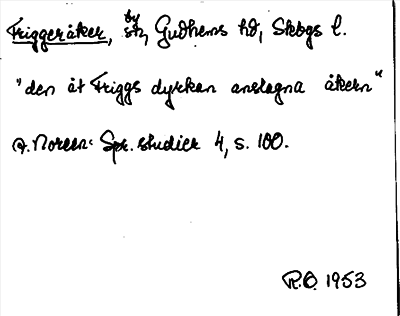 Friggeråker, by
sn, Gudhems hd, Skbgs l.
"den åt Friggs dyrkan anslagna åkern"
A. Noreen: Spr. studier 4, s. 100.
R.O. 1953